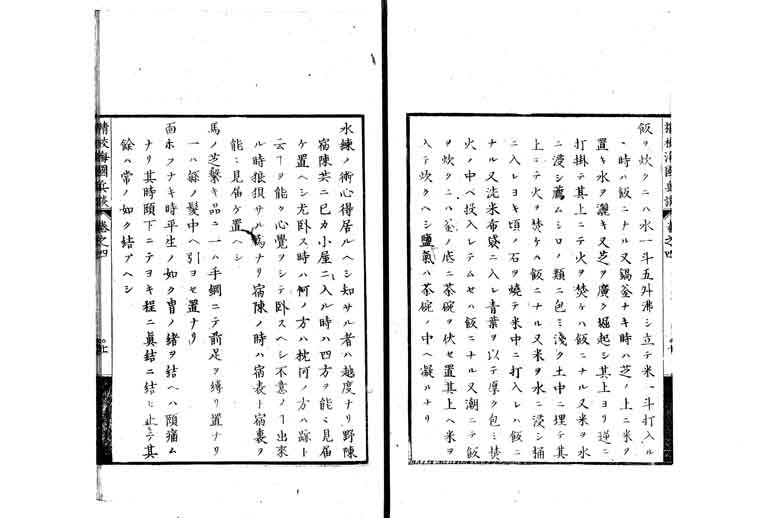 飯ヲ炊クニハ水一斗五升沸シ立テ米一斗打入ル
ヽ時ハ飯ニナル又鍋釜ナキ時ハ芝ノ上ニ米ヲ
置キ水ヲ灑キ又芝ヲ廣ク堀起シ其上ヨリ逆ニ
打掛テ其上ニテ火ヲ焚ケハ飯ニナル又米ヲ水
ニ浸シ薦ムシロノ類ニ包ミ淺ク土中ニ埋テ其
上ニテ火ヲ焚ケハ飯ニナル又米ヲ水ニ浸シ桶
ニ入レヨキ頃ノ石ヲ燒テ米中ニ打入レハ飯ニ
ナル又洗米布袋ニ入レ青葉ヲ以テ厚ク包ミ焚
火ノ中ヘ投入レテムセハ飯ニナル又潮ニテ飯
ヲ炊クニハ釜ノ底ニ茶碗ヲ伏セ置其上ヘ米ヲ
入テ炊クヘシ鹽氣ハ茶碗ノ中ヘ凝ルナリ
水練ノ術心得居ルヘシ知サル者ハ越度ナリ野陳
宿陳共ニ已カ小屋ニ入ル時ハ四方ヲ能ミ見届
ケ置ヘシ尤臥ス時ハ何ノ方ハ枕何ノ方ハ跡ト
云ヿヲ能ク心覺ヲシテ臥スヘシ不意ノヿ出來
ル時狼狽サル爲ナリ宿陳ノ時ハ宿表ト宿裏ヲ
能ミ見届ケ置ヘシ
馬ノ芝繫キ品ニ一ハ手綱ニテ前足ヲ縛リ置ナリ
一ハ鬃ノ髪中ヘ引ヨセ置ナリ
面ホフナキ時平生ノ如ク冑ノ緒ヲ結ヘハ頤痛ム
ナリ其時頤下ニテヨキ程ニ眞結ニ結ヒ止テ其
餘ハ常ノ如ク結フヘシ
精校海國兵談
卷之四